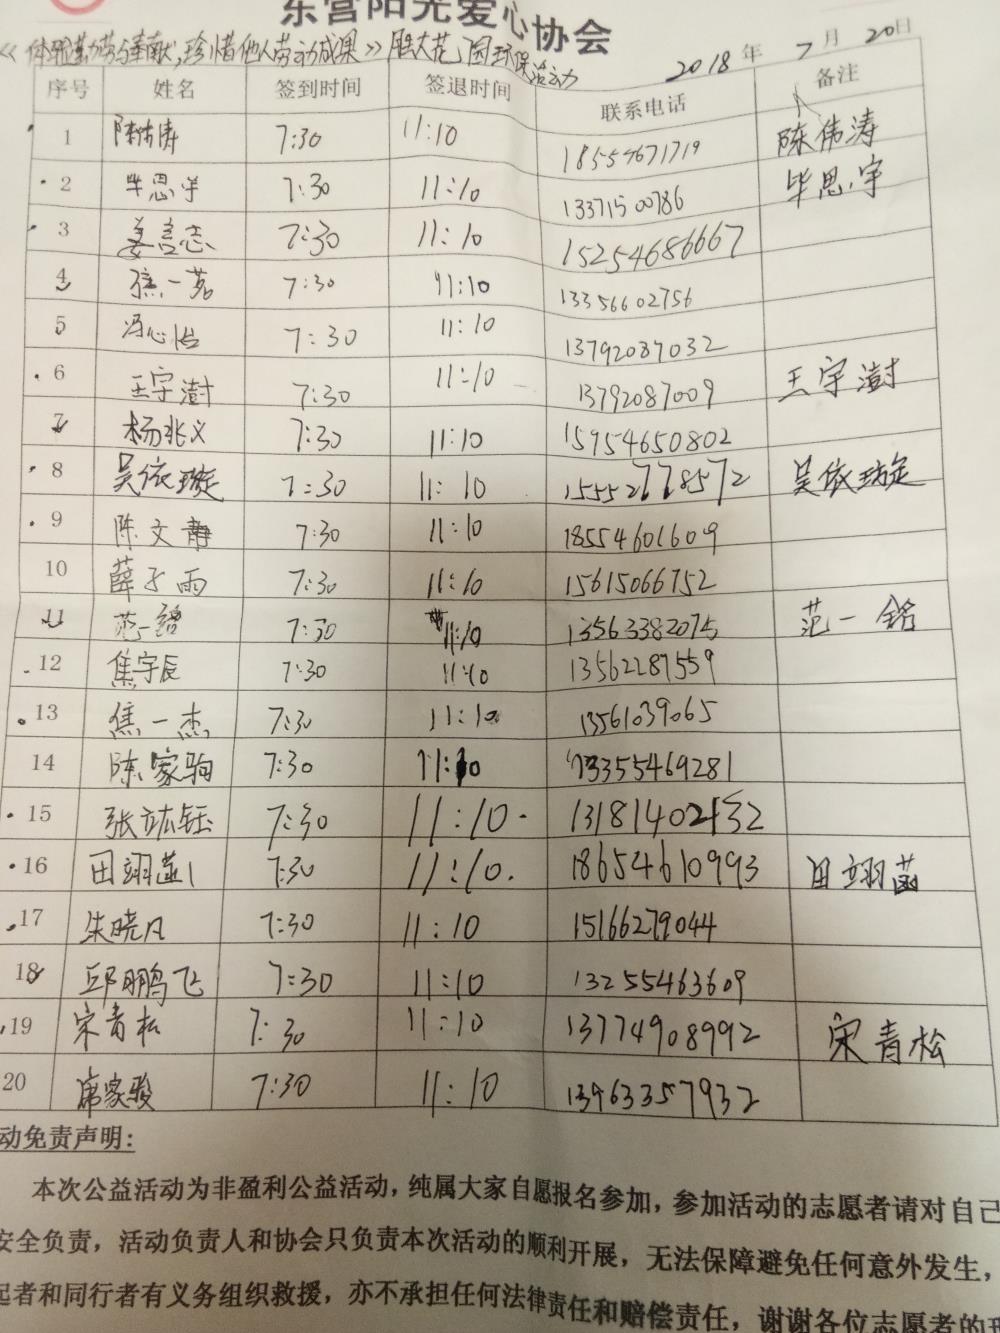 东营阳光爱心协会
《体验勤劳与奉献,珍惜他人劳动成果》胜大花园环保活动 2018年7月20日
序号 姓名 签到时间 签退时间 联系电话 备注
1 陈伟涛 7:30 11:10 18554671719 陈伟涛
2 毕思宇 7:30 11:10 13371500786 毕思宇
3 姜言志 7:30 11:10 15254686667
4 焦一茗 7:30 11:10 13356602756
5 冯心怡 7:30 11:10 13792087032
6 王宇澍 7:30 11:10 13792087009 王宇澍
7 杨兆义 7:30 11:10 15954650802
8 吴依璇 7:30 11:10 15552778572 吴依璇
9 陈文静 7:30 11:10 18554601609
10 薛子雨 7:30 11:10 15615066752
11 范一铭 7:30 11:10 13563382075 范一铭
12 焦宇辰 7:30 11:10 13562287559
13 焦一杰 7:30 11:10 13561039065
14 陈家驹 7:30 11:10 13355469281
15 张竑钰 7:30 11:10. 13181402
16 田翊菡 7:30 11:10. 18654610993 田翊菡
17 朱晓凡 7:30 11:10 15166279044
18 邱鹏飞 7:30 11:10 13255463609
19 宋青松 7:30 11:10 13774908992 宋青松
20 席家骏 7:30 11:10 13963357932
动免责声明:
本次公益活动为非盈利公益活动,纯属大家自愿报名参加,参加活动的志愿者请对自己
安全负责,活动负责人和协会只负责本次活动的顺利开展,无法保障避免任何意外发生,
起者和同行者有义务组织救援,亦不承担任何法律责任和赔偿责任,谢谢各位志愿者的